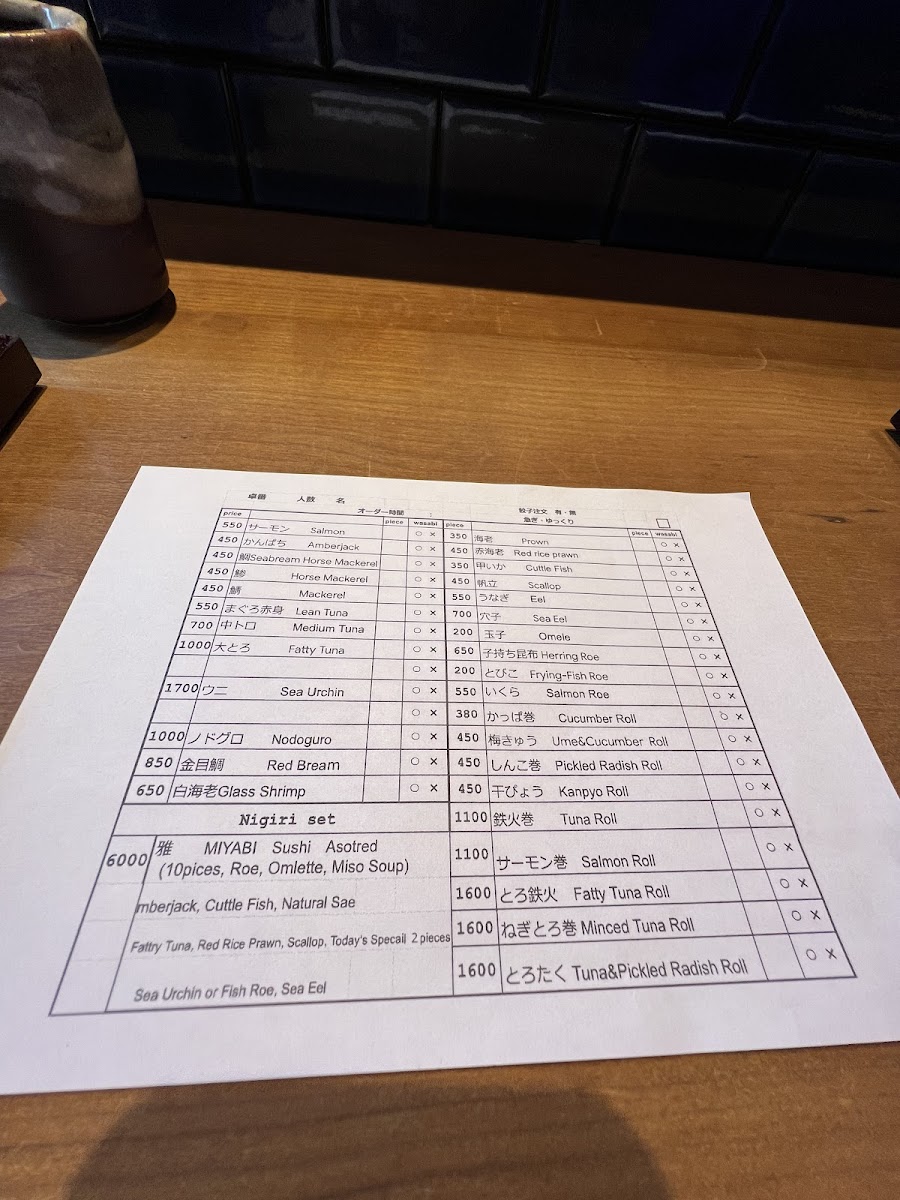 卓番 人数 名
オーダー時間 :
餃子注文 有・無
急ぎ・ゆっくり
price piece wasabi
550 サーモン Salmon ○ ×
450 かんぱち Amberjack ○ ×
450 鯛Seabream Horse Mackerel ○ ×
450 鯵 Horse Mackerel ○ ×
450 鯖 Mackerel ○ ×
550 まぐろ赤身 Lean Tuna ○ ×
700 中トロ Medium Tuna ○ ×
1000 大とろ Fatty Tuna ○ ×
○ ×
1700 ウニ Sea Urchin ○ ×
○ ×
1000 ノドグロ Nodoguro ○ ×
850 金目鯛 Red Bream ○ ×
650 白海老Glass Shrimp ○ ×
Nigiri set
6000 雅 MIYABI Sushi Asotred
(10pices, Roe, Omlette, Miso Soup)
mberjack, Cuttle Fish, Natural Sae
Fattry Tuna, Red Rice Prawn, Scallop, Today's Specail 2pieces
Sea Urchin or Fish Roe, Sea Eel
piece piece wasabi
350 海老 Prown ○ ×
450 赤海老 Red rice prawn ○ ×
350 甲いか Cuttle Fish ○ ×
450 帆立 Scallop ○ ×
550 うなぎ Eel ○ ×
700 穴子 Sea Eel ○ ×
200 玉子 Omele ○ ×
650 子持ち昆布 Herring Roe ○ ×
200 とびこ Frying-Fish Roe ○ ×
550 いくら Salmon Roe ○ ×
380 かっぱ巻 Cucumber Roll ○ ×
450 梅きゅう Ume&Cucumber Roll ○ ×
450 しんこ巻 Pickled Radish Roll ○ ×
450 干ぴょう Kanpyo Roll ○ ×
1100 鉄火巻 Tuna Roll ○ ×
1100 サーモン巻 Salmon Roll ○ ×
1600 とろ鉄火 Fatty Tuna Roll ○ ×
1600 ねぎとろ巻 Minced Tuna Roll ○ ×
1600 とろたく Tuna&Pickled Radish Roll ○ ×